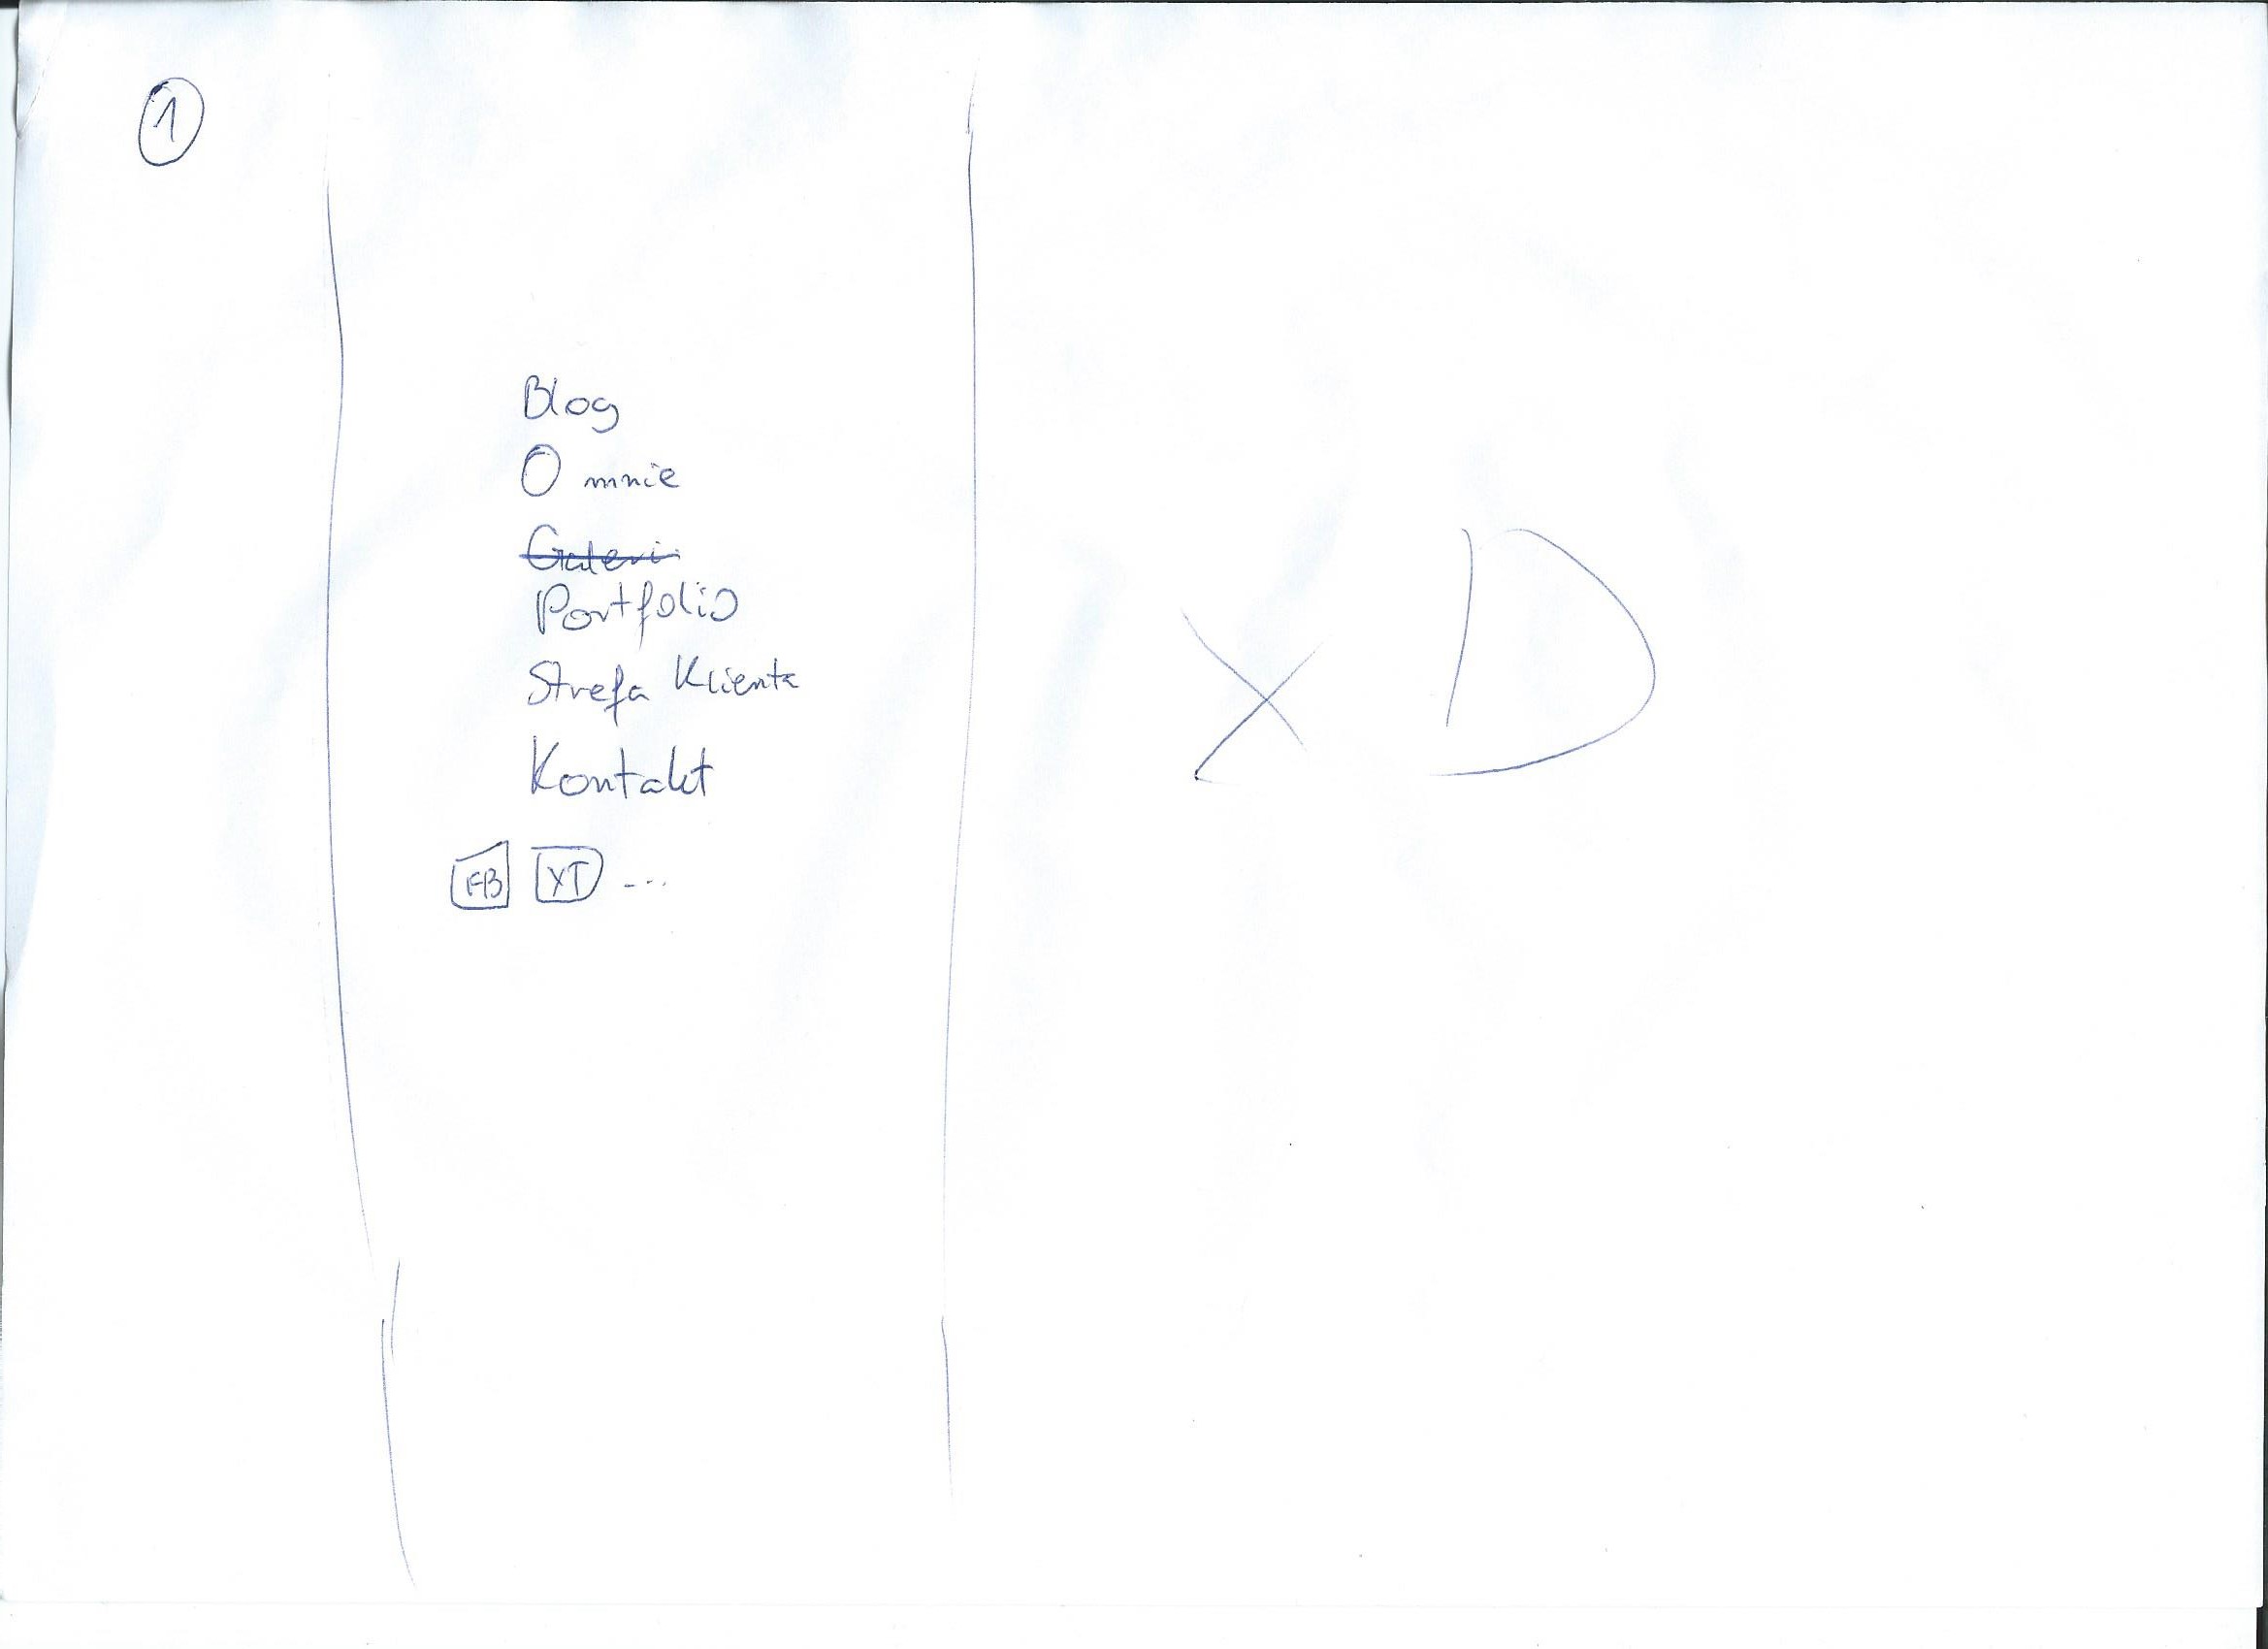 1
Blog
O mnie
Galeri
Portfolio
Strefa Klienta
Kontakt
FB YT ...
X D